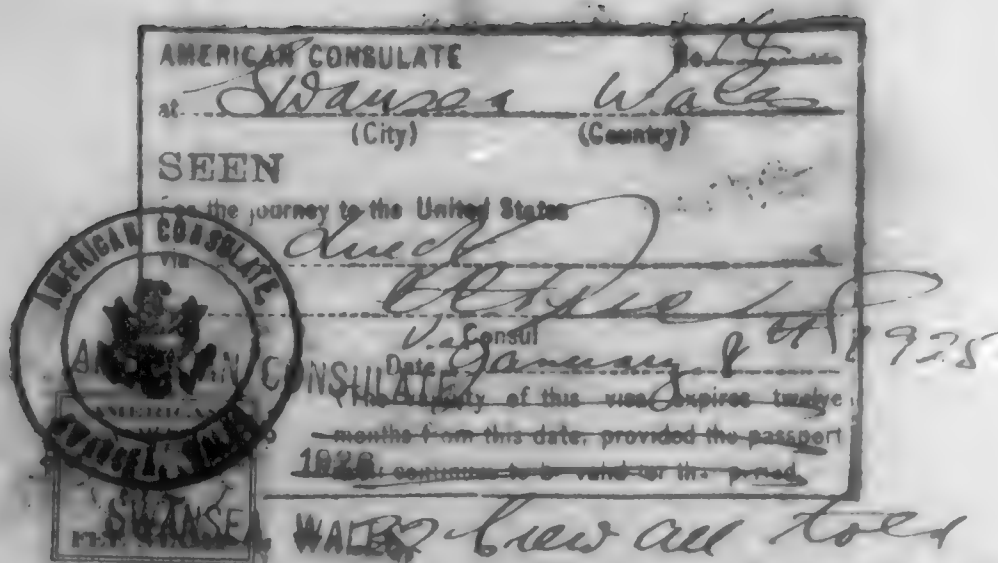 AMERICAN CONSULATE No.
at Swansea Wales
(City) (Country)
SEEN
the journey to the United States
direct
via
V. Consul
Date January 8th 1925
The validity of this visa expires twelve
months from this date, provided the passport
continues to be valid for this period.
AMERICAN CONSULATE
SWANSEA, WALES
AMERICAN CONSULATE
SWANSEA, WALES
Crew all told